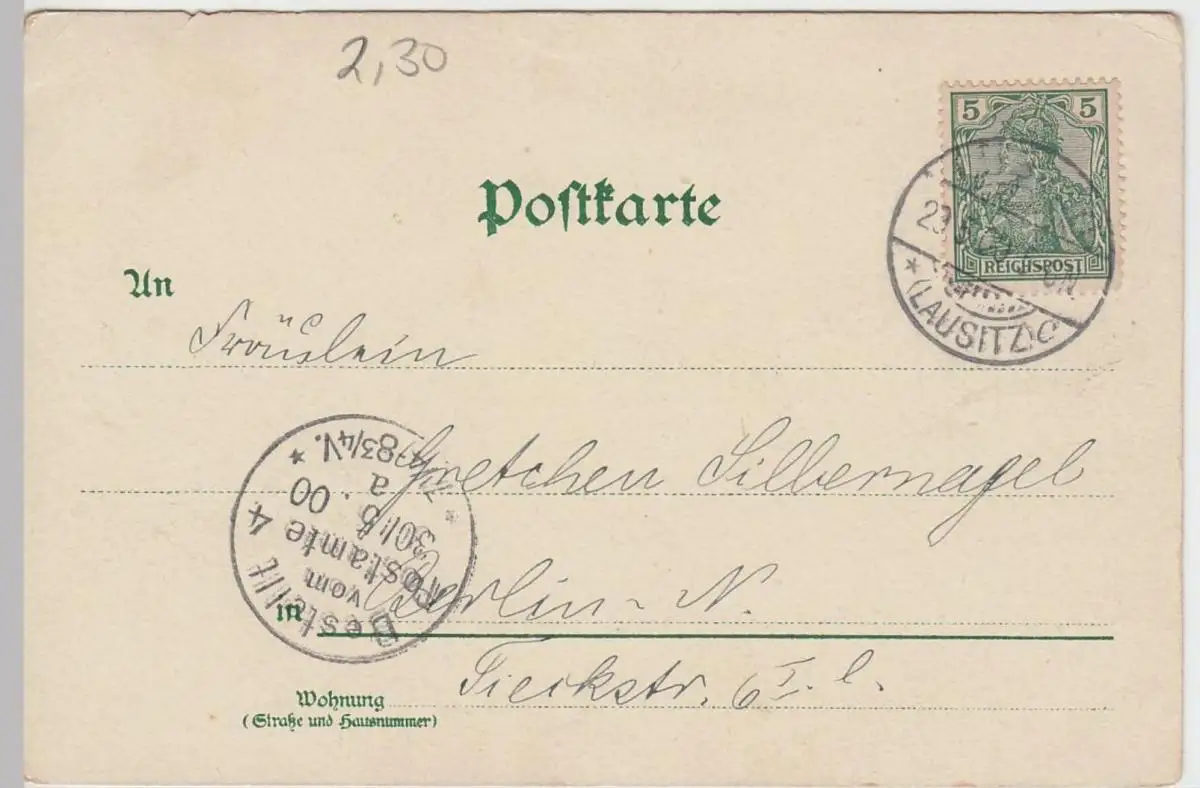 2,30
5 5
REICHSPOST
(LAUSITZ)
Postkarte
An
Fräulein
Gretchen Silbernagel
Bestellt
vom
Postamte 4
30/5.00
a
83/4V.
in Berlin-N.
Tieckstr. 6 I. l.
Wohnung
(Straße und Hausnummer)